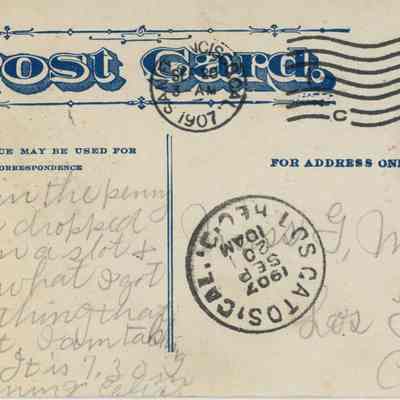 Post Card.
SAN FRANCISCO, CAL.
SEP 20
3 AM
1907
C
CE MAY BE USED FOR
CORRESPONDENCE
FOR ADDRESS ONL
in the penny
dropped
in a slot &
what I got
thing that
I am
It is 7,30
LOS GATOS, CAL. REC'D.
1907
SEP
20
10AM
Miss G, M
Los